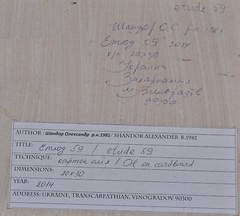 etude 59
Шандор О.С. р.н. 1981
Етюд 59 2014
к/о 20х30
Україна
Закарпаття
м. Виноградів
90300
AUTHOR: Шандор Олександр р.н.1981 / SHANDOR ALEXANDER B.1981
TITLE: Етюд 59 / etude 59
TECHNIQUE: картон олія / Oil on cardboard
DIMENSIONS: 20х30
YEAR: 2014
ADDRESS: UKRAINE, TRANSCARPATHIAN, VINOGRADOV 90300